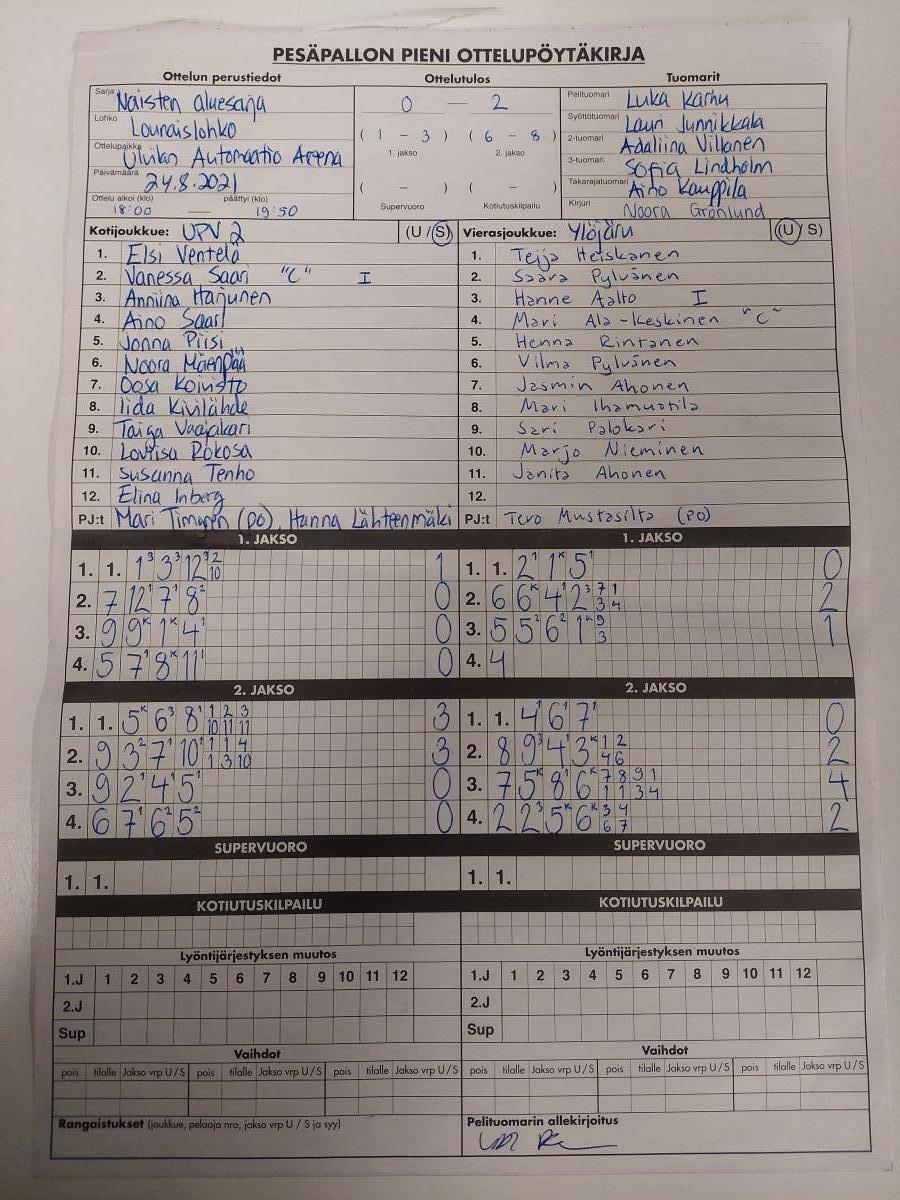 PESÄPALLON PIENI OTTELUPÖYTÄKIRJA
Ottelun perustiedot
Sarja Naisten aluesarja
Lohko Lounaislohko
Ottelupaikka Ulvilan Automaatio Areena
Päivämäärä 24.8.2021
Ottelu alkoi (klo) päättyi (klo)
18:00 — 19:50
Ottelutulos
0 — 2
( 1 - 3 ) ( 6 - 8 )
1. jakso 2. jakso
( - ) ( - )
Supervuoro Kotiutuskilpailu
Tuomarit
Pelituomari Luka Karhu
Syöttötuomari Lauri Junnikkala
2-tuomari Adaliina Villanen
3-tuomari Sofia Lindholm
Takarajatuomari Aino Kauppila
Kirjuri Noora Grönlund
Kotijoukkue: UPV 2 (U / S)
1. Elsi Ventelä
2. Vanessa Saari "C" I
3. Anniina Harjunen
4. Aino Saari
5. Jonna Piisi
6. Noora Mäenpää
7. Oosa Koivisto
8. Iida Kivilähde
9. Taiga Vaajakari
10. Loviisa Rokosa
11. Susanna Tenho
12. Elina Inberg
PJ:t Mari Timgren (PO), Hanna Lähteenmäki
Vierasjoukkue: Ylöjäru (U / S)
1. Teija Heiskanen
2. Saara Pylvänen
3. Hanne Aalto I
4. Mari Ala-Keskinen "C"
5. Henna Rintanen
6. Vilma Pylvänen
7. Jasmin Ahonen
8. Mari Ihamuotila
9. Sari Palokari
10. Marjo Nieminen
11. Janita Ahonen
12.
PJ:t Tero Mustasilta (PO)
1. JAKSO
1. 1. 1³ 3³ 12³ 2 10 1
2. 7 12¹ 7¹ 8² 0
3. 9 9ᴷ 1ᴷ 4¹ 0
4. 5 7¹ 8ᴷ 11¹ 0
1. JAKSO
1. 1. 2¹ 1ᴷ 5¹ 0
2. 6 6ᴷ 4¹ 2³ 7 1 3 4 2
3. 5 5² 6² 1ᴷ 9 3 1
4. 4
2. JAKSO
1. 1. 5ᴷ 6³ 8¹ 1 2 3 10 11 11 3
2. 9 3² 7¹ 10¹ 1 1 4 1 3 10 3
3. 9 2¹ 4¹ 5¹ 0
4. 6 7¹ 6² 5² 0
2. JAKSO
1. 1. 4¹ 6¹ 7¹ 0
2. 8 9³ 4¹ 3ᴷ 1 2 4 6 2
3. 7 5ᴷ 8¹ 6ᴷ 7 8 9 1 1 1 3 4 4
4. 2 2³ 5ᴷ 6ᴷ 3 4 6 7 2
SUPERVUORO
1. 1.
SUPERVUORO
1. 1.
KOTIUTUSKILPAILU
KOTIUTUSKILPAILU
Lyöntijärjestyksen muutos
1.J 1 2 3 4 5 6 7 8 9 10 11 12
2.J
Sup
Lyöntijärjestyksen muutos
1.J 1 2 3 4 5 6 7 8 9 10 11 12
2.J
Sup
Vaihdot
pois tilalle Jakso vrp U / S pois tilalle Jakso vrp U / S pois tilalle Jakso vrp U / S
Vaihdot
pois tilalle Jakso vrp U / S pois tilalle Jakso vrp U / S pois tilalle Jakso vrp U / S
Rangaistukset (joukkue, pelaaja nro, jakso vrp U / S ja syy)
Pelituomarin allekirjoitus